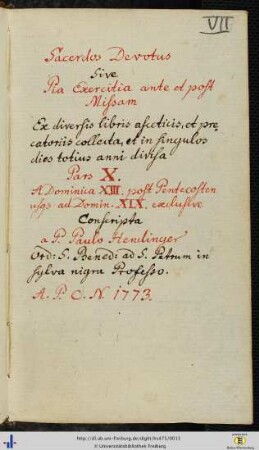 VII
Sacerdos Devotus
Sive
Pia Exercitia ante et post
Missam
Ex diversis libris asceticis, et pre-
catoriis collecta, et in singulos
dies totius anni divisa
Pars X.
A Dominica XIII. post Pentecosten
usqs ad Domin. XIX. exclusive
Conscripta
a P. Paulo Hendinger
Ord: S. Bened: ad S. Petrum in
sylva nigra Professo.
A. P. C. N. 1773.
© Universitätsbibliothek Freiburg